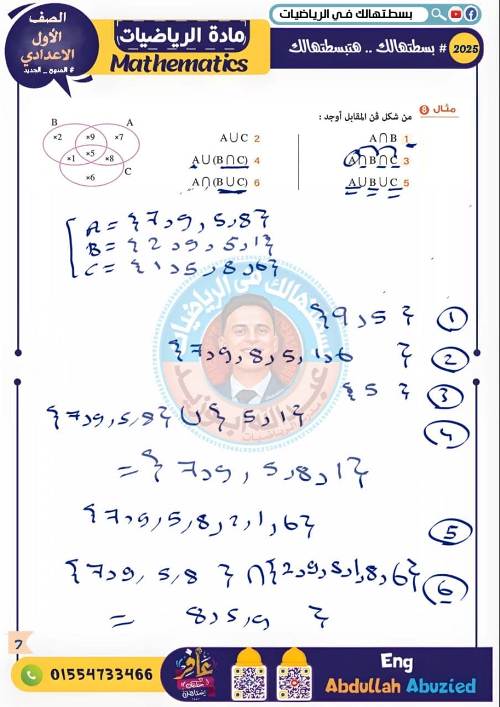 بسطتهالك في الرياضيات
الصف
الأول
الاعدادي
# المنهج _ الجديد
مادة الرياضيات
Mathematics
2025 # بسطتهالك .. هتبسطتهالك
مثال 8 من شكل ڤن المقابل أوجد :
1 A∩B
2 A∪C
3 A∩B∩C
4 A∪(B∩C)
5 A∪B∪C
6 A∩(B∪C)
B A
×2 ×9 ×7
×5
×1 ×8
×6 C
A = {7 , 9 , 5 , 8}
B = {2 , 9 , 5 , 1}
C = {1 , 5 , 8 , 6}
{9 , 5} ①
{7 , 9 , 8 , 5 , 1 , 6 } ②
{5 } ③
{7 , 9 , 5 , 8} ∪ { 5 , 1} ④
= { 7 , 9 , 5 , 8 , 1}
{7 , 9 , 5 , 8 , 2 , 1 , 6} ⑤
{7 , 9 , 5 , 8 } ∩ {2 , 9 , 8 , 1 , 8 , 6} ⑥
= 8 , 5 , 9 }
بسطتهالك في الرياضيات
7
01554733466
Eng
Abdullah Abuzied